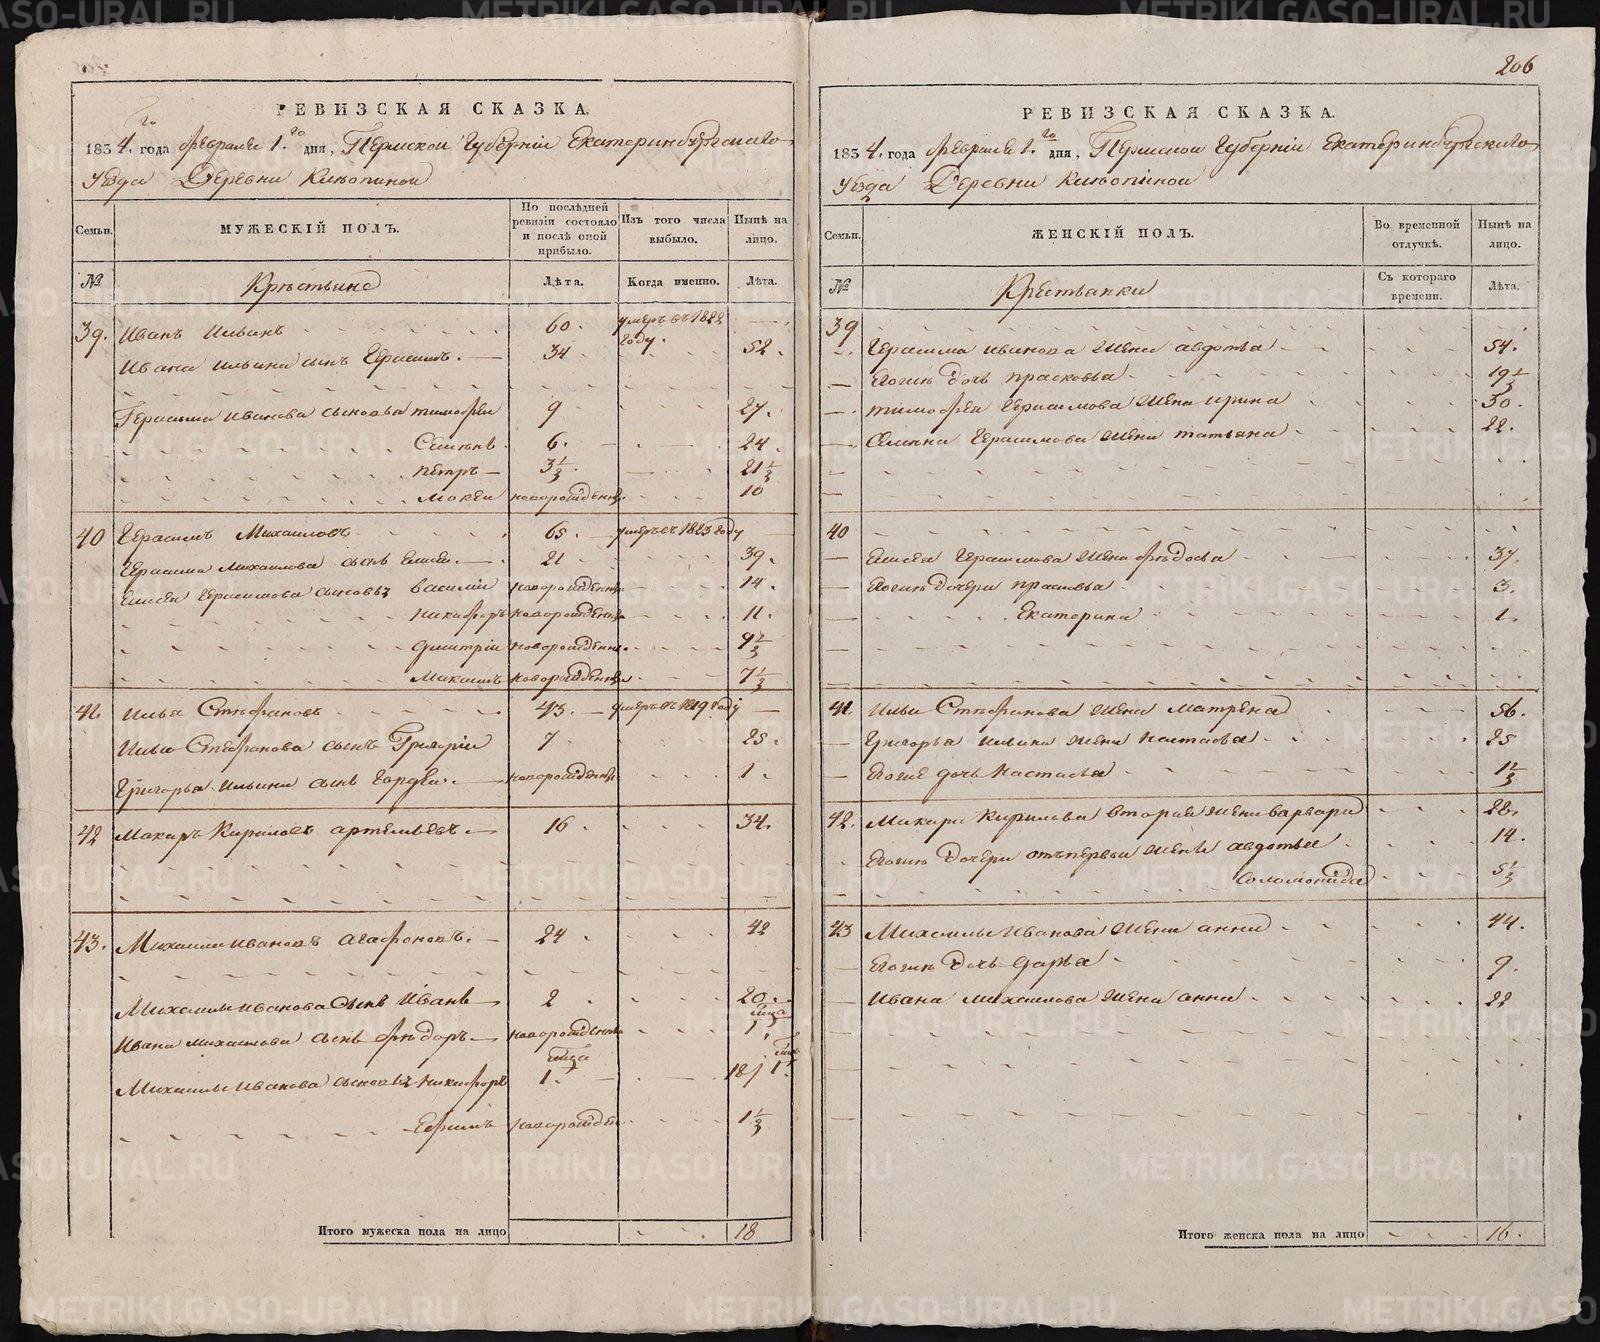 РЕВИЗСКАЯ СКАЗКА.
1834.го года февраля 1.го дня, Пермской Губерніи Екатеринбургскаго
Уѣзда Деревни
Семьи. МУЖЕСКІЙ ПОЛЪ. По послѣдней ревизіи состояло и послѣ оной прибыло. Изъ того числа выбыло. Нынѣ на лицо.
№ Крестьяне Лѣта. Когда именно. Лѣта.
39. Иванъ Ильинъ 60. умеръ въ 1822 году.
Ивана Ильина сынъ Герасимъ. 34 52.
Герасима Иванова сыновья тимофей 9 27.
Семенъ 6. 24.
петръ 3 1/2 21 1/2
мокей новорожденъ. 10
40 Герасимъ Михаиловъ 65. умеръ въ 1823 году
Герасима Михаилова сынъ Елисей. 21 39.
Елисея Герасимова сыновья василій новорожденъ 14.
никифоръ новорожденъ 11.
дмитрій новорожденъ. 9 1/2
Максимъ новорожденъ 7 1/2
41. Илья Стефановъ 43. умеръ въ 1819 году
Ильи Стефанова сынъ Григорій 7 25.
Григорья Ильина сынъ Гордей. новорожденъ 1.
42 Макаръ Кириловъ артемьевъ. 16 34.
43. Михаила Ивановъ агафоновъ. 24 42
Михаилы Иванова сынъ Иванъ 2 20.
Ивана Михаилова сынъ Федоръ новорожденъ
Михаилы Иванова сыновья Никифоръ 1.
Ефимъ новорожден 1 1/2
Итого мужеска пола на лицо 18
206
РЕВИЗСКАЯ СКАЗКА.
1834. года февраля 1.го дня, Пермской Губерніи Екатеринбургскаго
Уѣзда Деревни
Семьи. ЖЕНСКІЙ ПОЛЪ. Во временной отлучкѣ. Нынѣ на лицо.
№ Крестьянки Съ котораго времени. Лѣта.
39
Герасима Иванова жена авдотья 54.
Егожъ дочь прасковья 19 1/2
тимофея Герасимова жена ирина 30.
Семена Герасимова жена татьяна 22.
40
Елисея Герасимова жена федосья 37.
Егожъ дочери 3.
Екатерина 1.
41. Ильи Стефанова жена матрена 56.
Григорья Ильина жена настасья 25
Егоже дочь настасья 1 1/2
42. Макара Кирилова вторая жена варвара 28.
Егожъ дочери отъ первой жены авдотья 14.
Соломонида 5 1/2
43 Михаилы Иванова жена анна 44.
Егожъ дочь дарья 9.
Ивана Михаилова жена анна 22
Итого женска пола на лицо 16.
METRIKI.GASO-URAL.RU